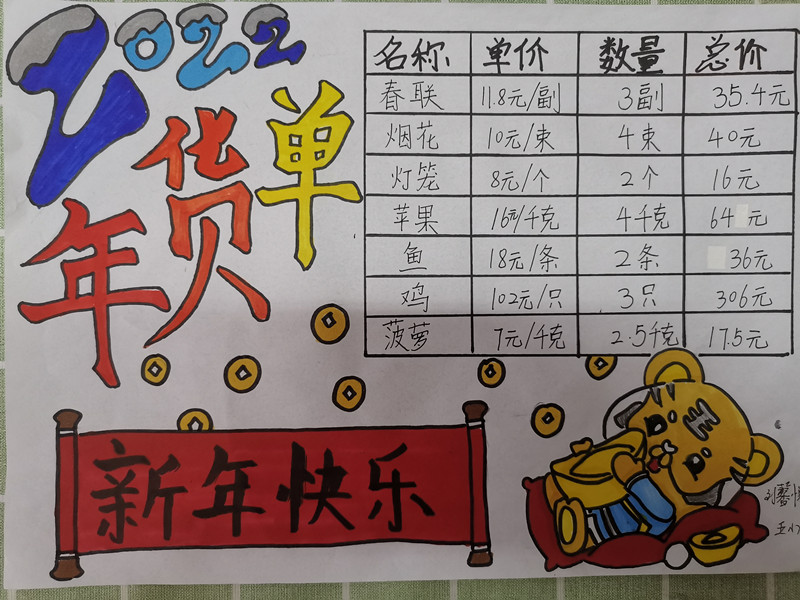 2022
年货单
名称 单价 数量 总价
春联 11.8元/副 3副 35.4元
烟花 10元/束 4束 40元
灯笼 8元/个 2个 16元
苹果 16元/千克 4千克 64元
鱼 18元/条 2条 36元
鸡 102元/只 3只 306元
菠萝 7元/千克 2.5千克 17.5元
新年快乐
王